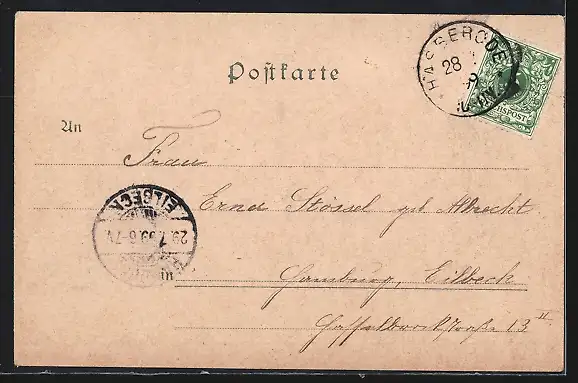 Postkarte
HASSERODE
28
SPOST
An
Frau
EILBECK
29.7.99.6-7N.
Erna Stössel geb Albrecht
in
Hamburg, Eilbeck
Hasselbrookstraße 13 II